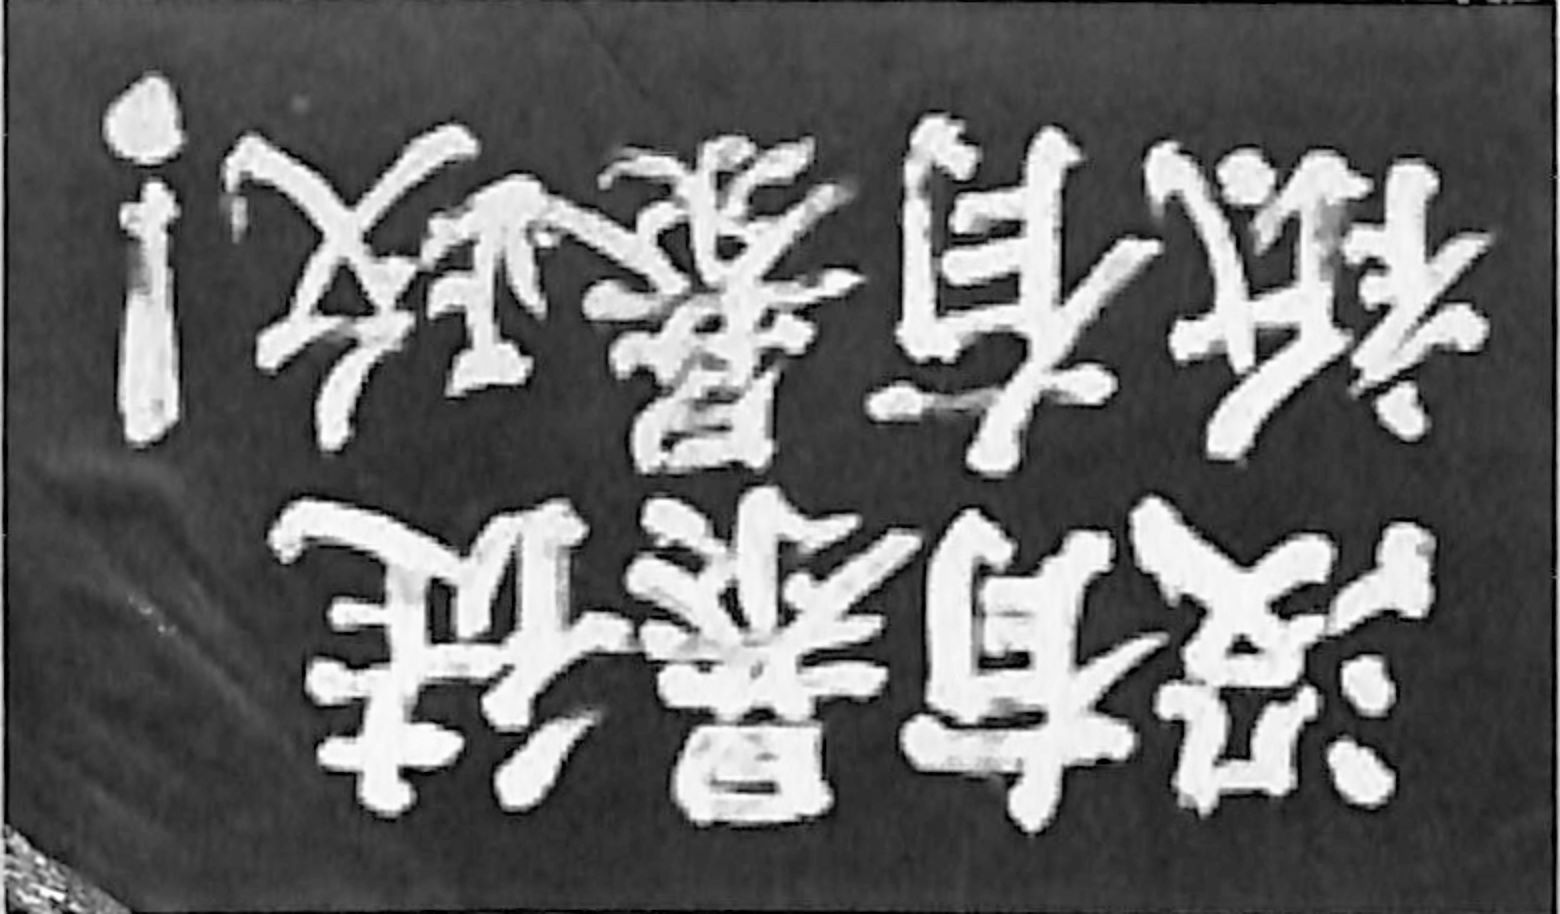 没有暴徒
袛有暴政!